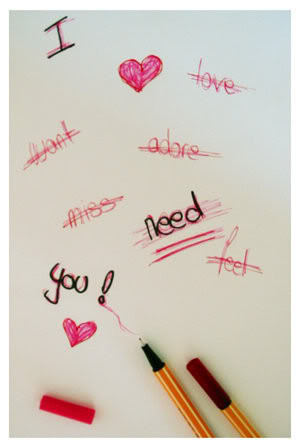 I
love
want
adore
miss
need
feel
you!